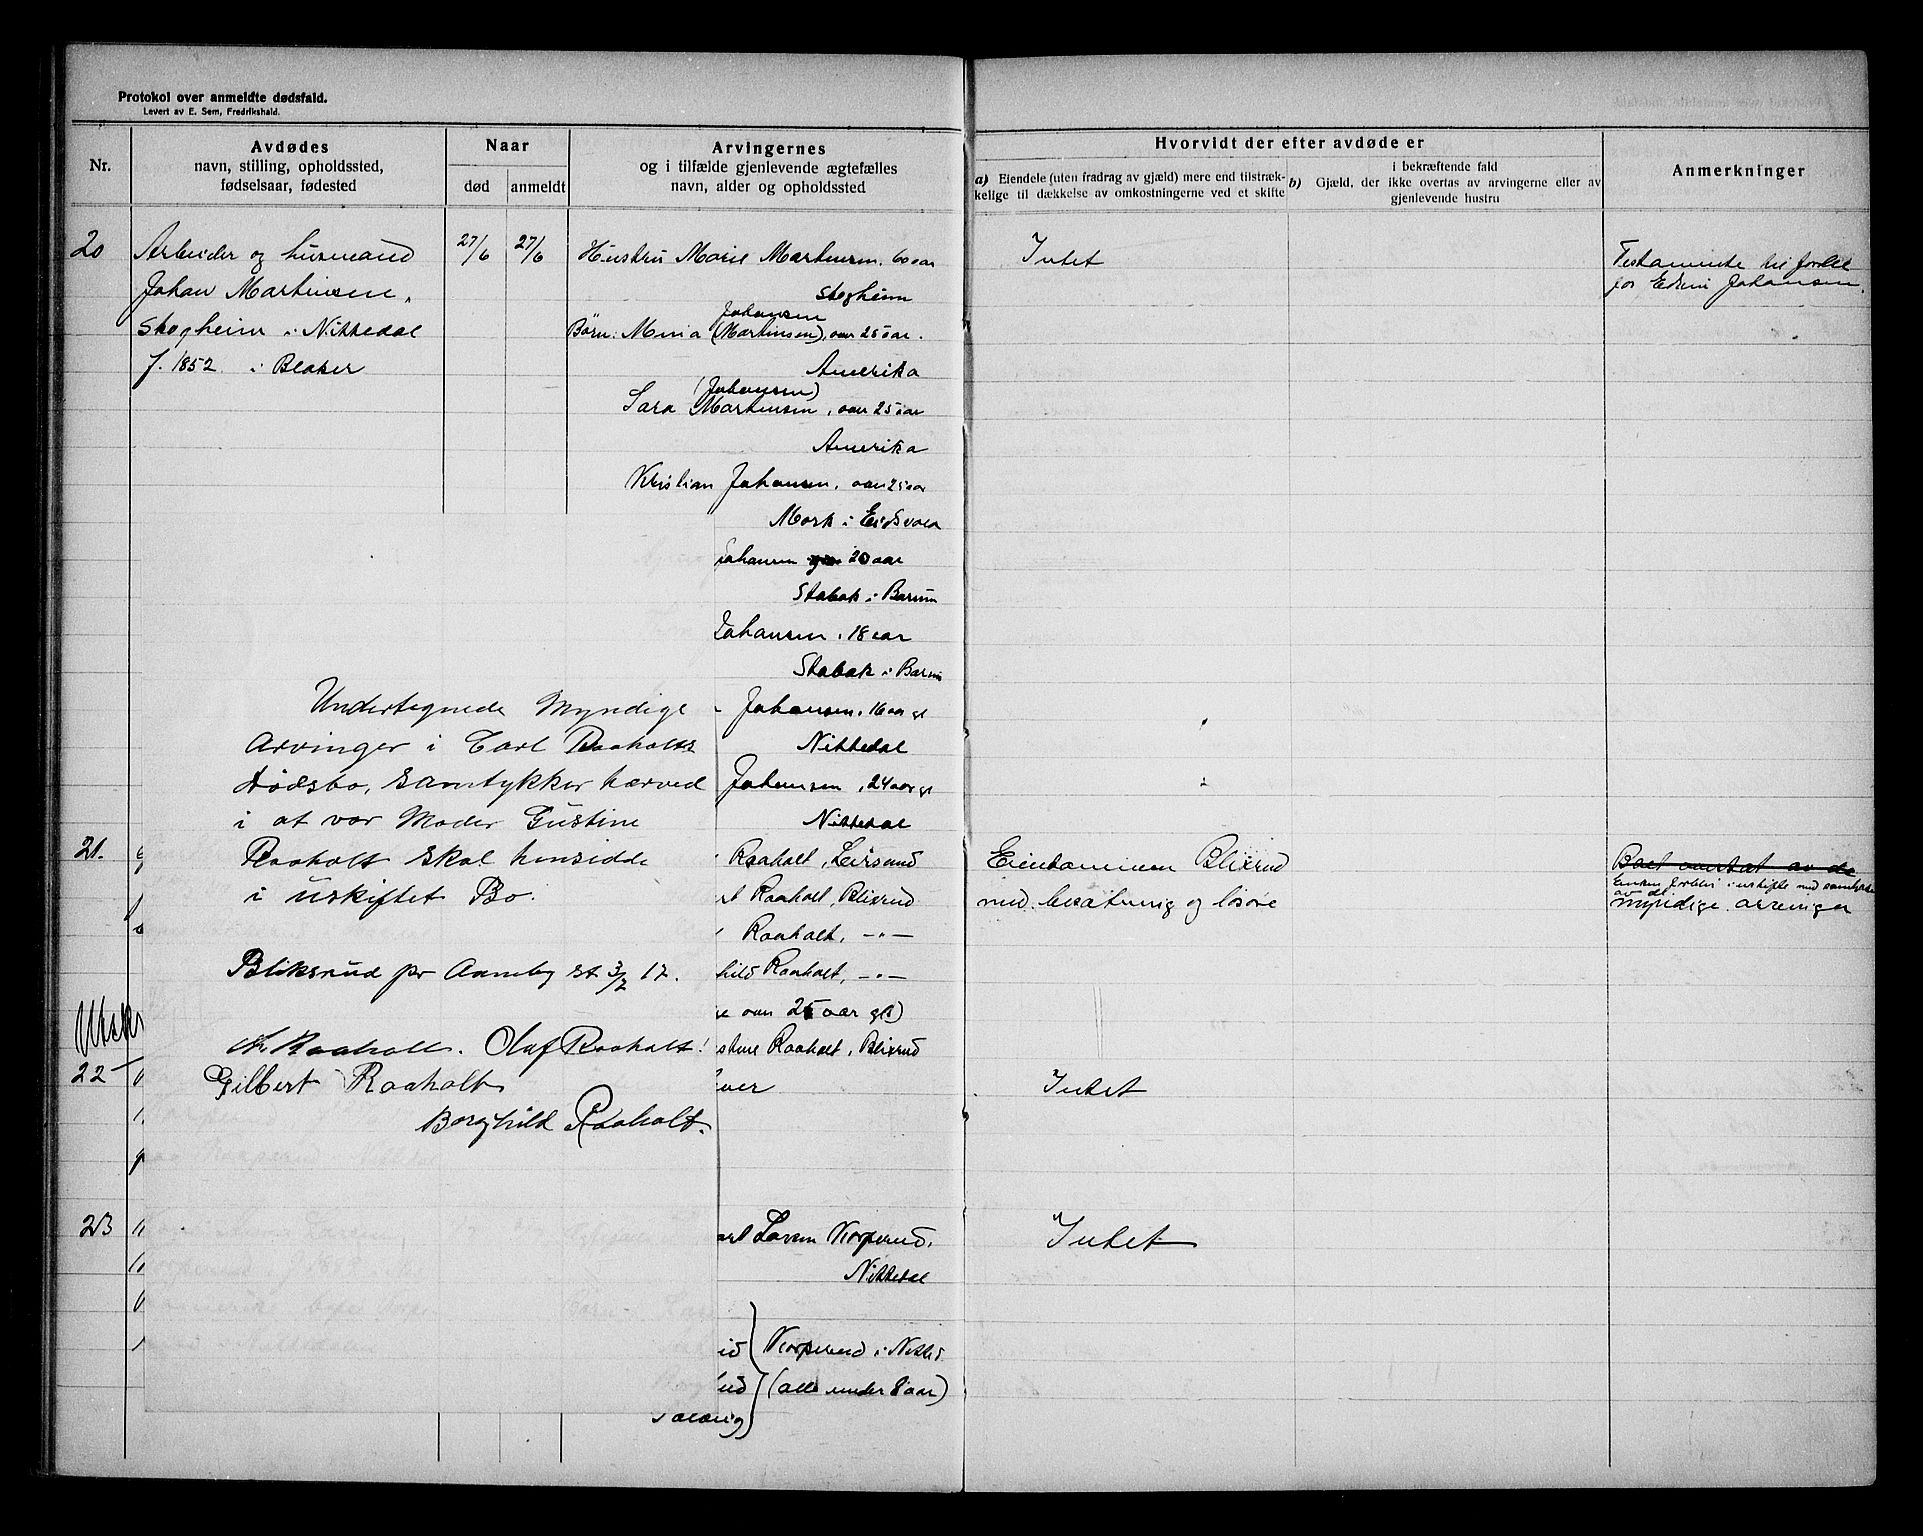 Protokol over anmeldte dødsfald.
Levert av E. Sem, Fredrikshald.
Nr.
Avdødes
navn, stilling, opholdssted,
fødselsaar, fødested
Naar
død
anmeldt
Arvingernes
og i tilfælde gjenlevende ægtefælles
navn, alder og opholdssted
Hvorvidt der efter avdøde er
a) Eiendele (uten fradrag av gjæld) mere end tilstræk-
kelige til dækkelse av omkostningerne ved et skifte
i bekræftende fald
b) Gjæld, der ikke overtas av arvingerne eller av
gjenlevende hustru
Anmerkninger
20
Arbeider og husmand
Johan Martinsen,
Skogheim i Nittedal
f. 1852 i Blaker
27/6
27/6
Hustru Marie Martinsen. 60 aar
Skogheim
Johansen
Børn: Maria (Martinsen), over 25 aar.
Amerika
(Johansen)
Sara Martinsen, over 25 aar
Amerika
Kristian Johansen, over 25 aar
Mork i Eidsvold
Johansen 20 aar
Stabæk i Bærum
Johansen, 18 aar
Stabæk i Bærum
Johansen, 16 aar gl
Nittedal
Johansen, 24 aar gl
Nittedal
Intet
Testamente til fordel
for Edvin Johansen.
Undertegnede Myndige
Arvinger i Carl Raaholts
Dødsbo, samtykker herved
i at vor Moder Gustine
Raaholt skal hensidde
i uskiftet Bo.
Bliksrud pr Aaneby st 3/7 17.
Raaholt. Olaf Raaholt.
Gilbert Raaholt
Borghild Raaholt.
21.
Raaholt, Leirsund
rt Raaholt, Blixrud
Raaholt, -"-
hild Raaholt, -"-
e over 25 aar gl)
stine Raaholt, Blixrud
Eiendommen Blixrud
med besætning og løsøre
Boet overtat av de
Enken forblir i uskifte med samtykke
av de
myndige arvinger
Utsk
22
Intet
23
arl Larsen Korperud,
Nittedal
id
Korperud i Nitted.
ild
(alle under 8 aar)
Solveig
Intet